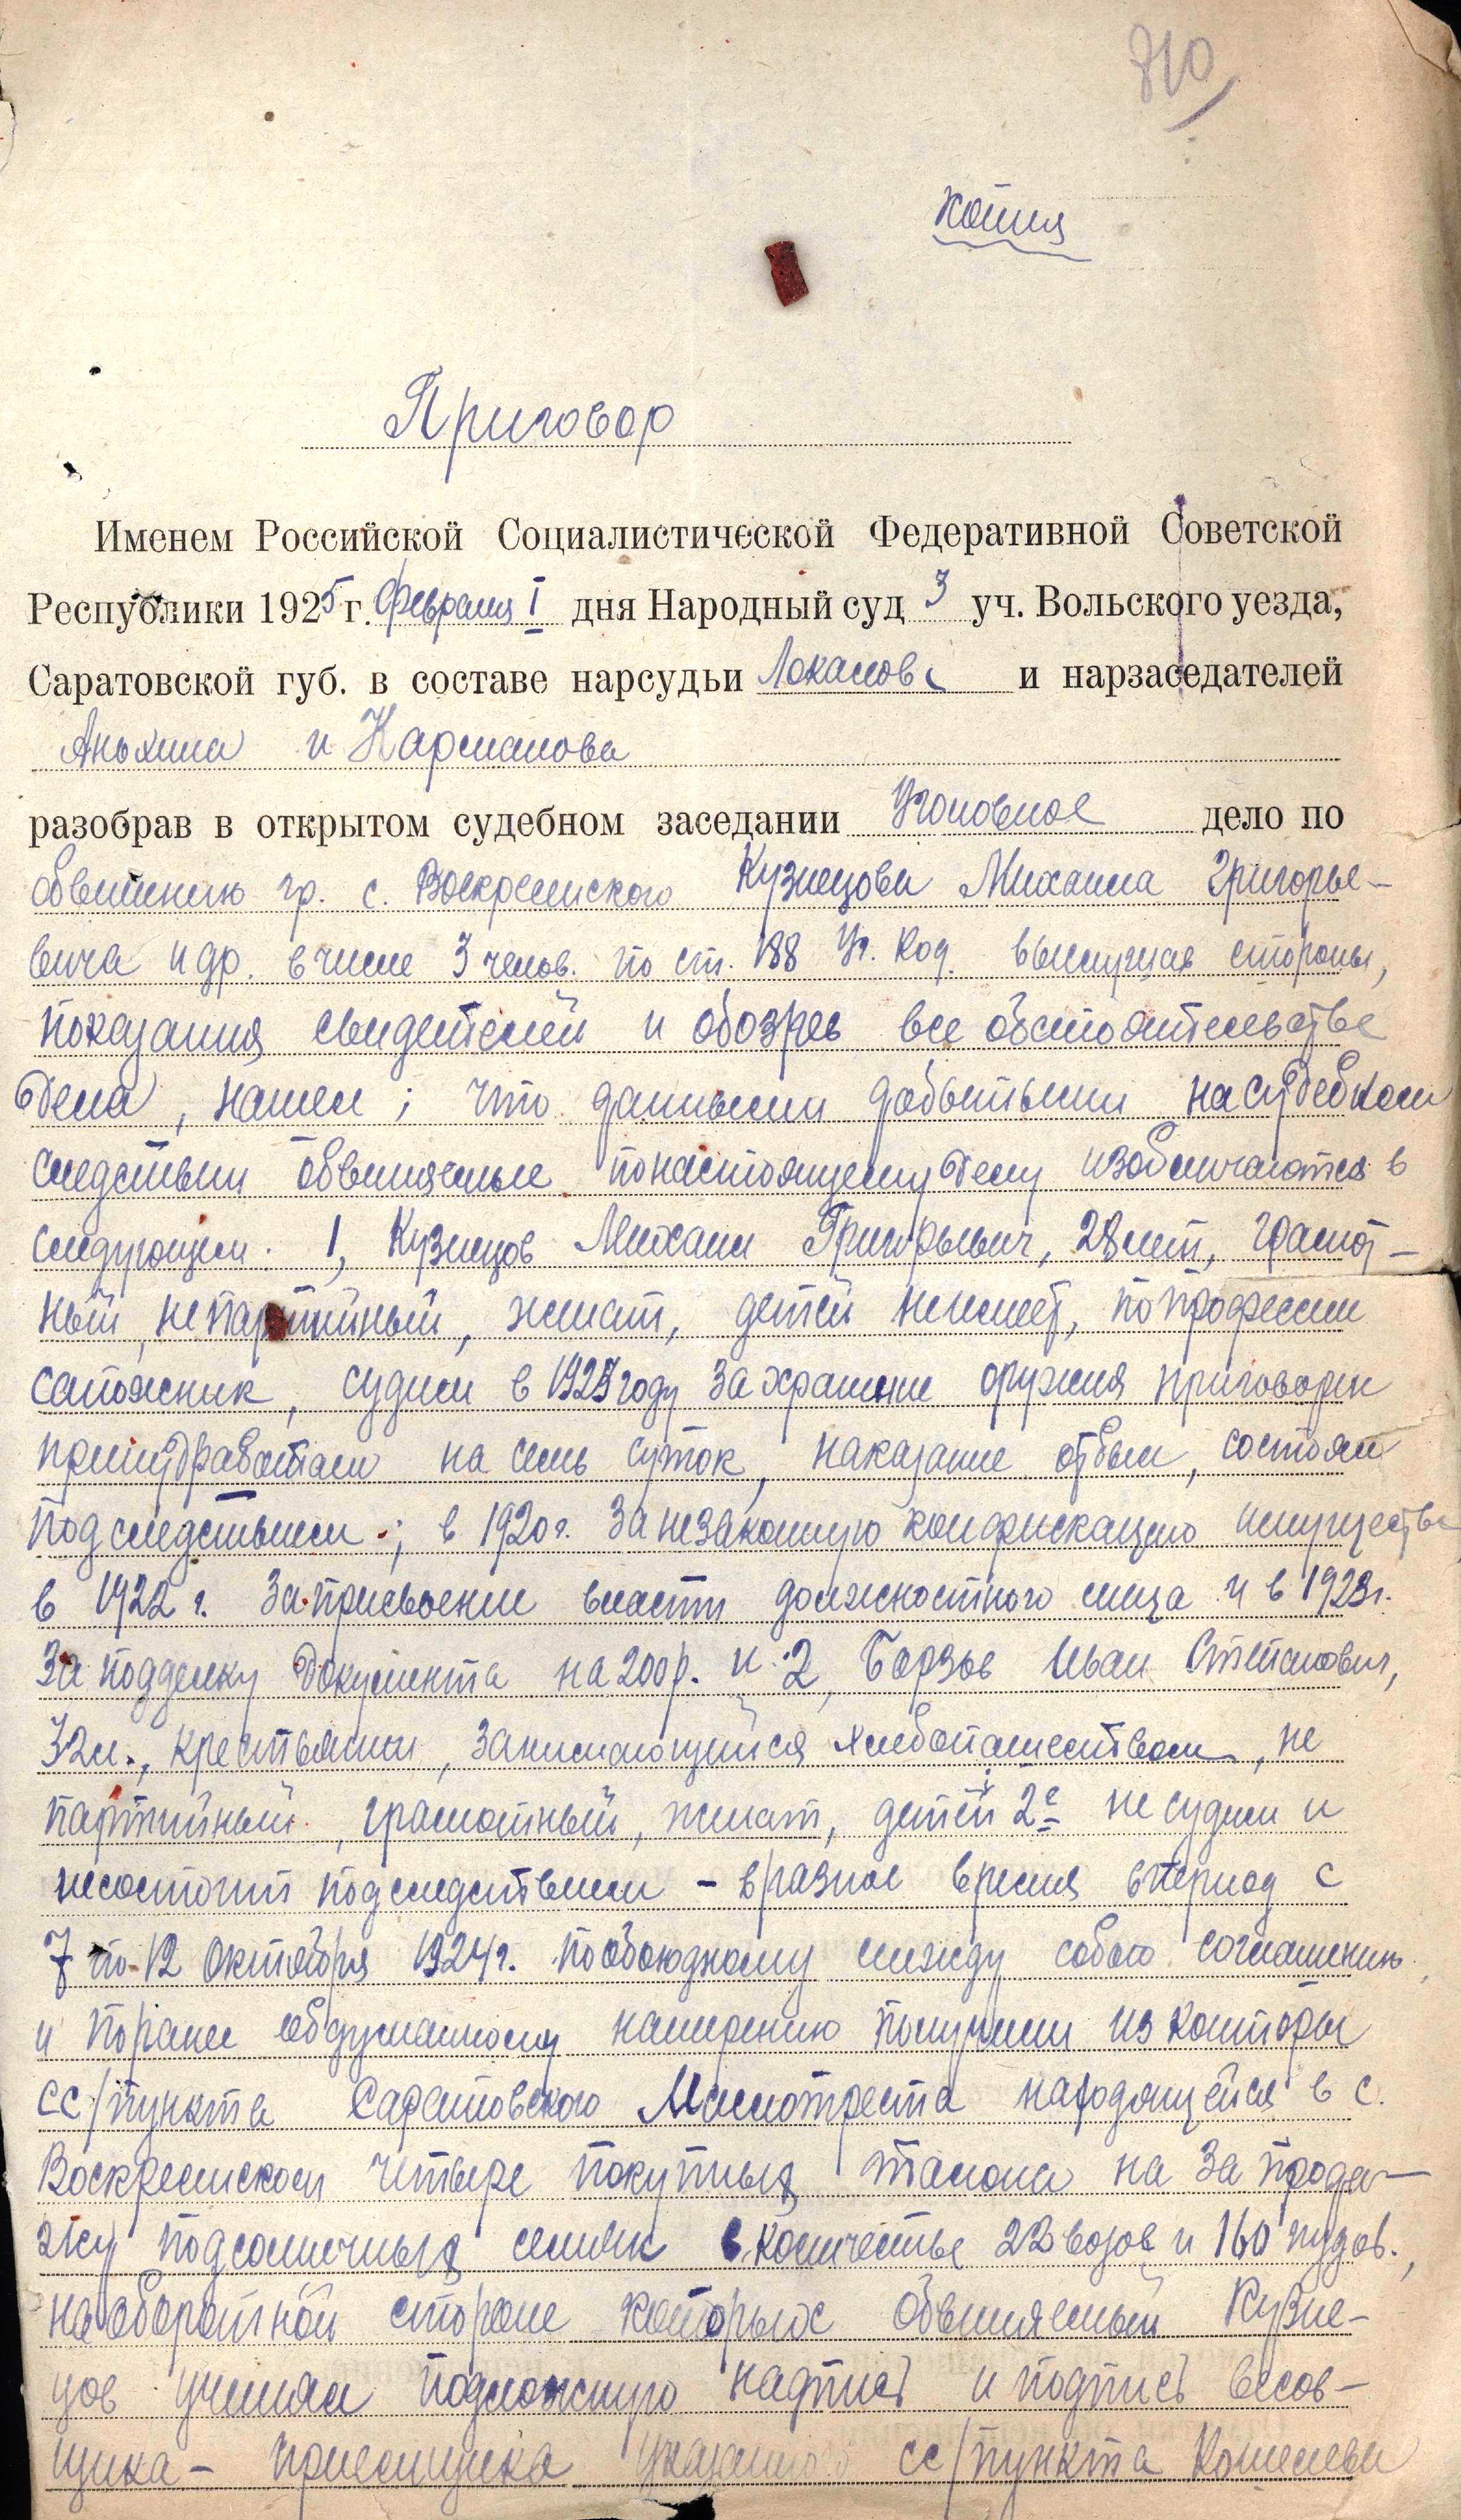 810
копия
Приговор
Именем Российской Социалистической Федеративной Советской
Республики 1925 г. февраля 1 дня Народный суд 3 уч. Вольского уезда,
Саратовской губ. в составе нарсудьи и нарзаседателей
Анохина и Карманова
разобрав в открытом судебном заседании Уголовное дело по
обвинению гр. с. Воскресенского Кузнецова Михаила Григорье-
вича и др. в числе 3 челов. по ст. 188 Уг. Код. выслушав стороны,
показания свидетелей и обозрев все обстоятельства
дела, нашел; что данными добытыми на судебном
следствии обвиняемые по настоящему делу изобличаются в
следующем. 1, Кузнецов Михаил Григорьевич, 28 лет, грамот-
ный, непартийный, женат, детей не имеет, по профессии
сапожник, судим в году за хранение оружия приговорен
принудработам на семь суток, наказание отбыл, состоял
под следствием; в 1920 г. за незаконную конфискацию имущества
в 1922 г. за присвоение власти должностного лица и в 1923 г.
за подделку документа на 200 р. и 2, Борзов Иван Степанович,
32 л., крестьянин, занимающийся хлебопашеством, не
партийный, грамотный, женат, детей 2е не судим и
не состоит под следствием – в разное время в период с
7 по 12 октября 1924 г. по обоюдному между собою соглашению
и по ранее обдуманному намерению получили из конторы
сс/пункта Саратовского Маслотреста находящейся в с.
Воскресенском четыре покупных талона на запрода-
жу подсолнечных семян в количестве 22 возов и 160 пудов.,
на оборотной стороне которых обвиняемый Кузне-
цов учинял подложную надпись и подпись весов-
щика – приемщика указанного сс/пункта Кошелева